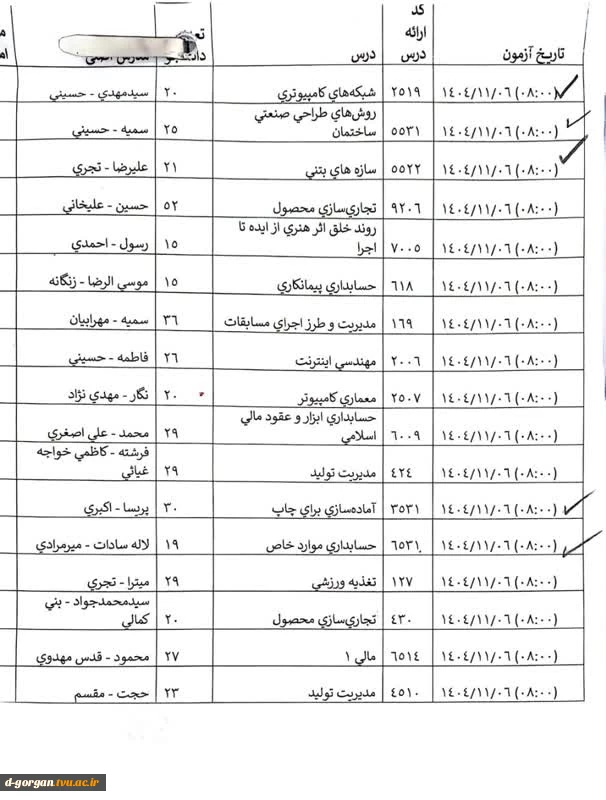 تاريخ آزمون کد ارائه درس درس
۱٤۰٤/۱۱/۰٦ (۰۸:۰۰) ۲٥۱۹ شبکه‌هاي کامپيوتري ۲۰ سيدمهدي - حسيني
۱٤۰٤/۱۱/۰٦ (۰۸:۰۰) ٥٥۳۱ روش‌هاي طراحي صنعتي ساختمان ۲٥ سميه - حسيني
۱٤۰٤/۱۱/۰٦ (۰۸:۰۰) ٥٥۲۲ سازه هاي بتني ۲۱ عليرضا - تجري
۱٤۰٤/۱۱/۰٦ (۰۸:۰۰) ۹۲۰٦ تجاري‌سازي محصول ٥۲ حسين - عليخاني
۱٤۰٤/۱۱/۰٦ (۰۸:۰۰) ۷۰۰٥ روند خلق اثر هنري از ايده تا اجرا ۱٥ رسول - احمدي
۱٤۰٤/۱۱/۰٦ (۰۸:۰۰) ٦۱۸ حسابداري پيمانکاري ۱٥ موسي الرضا - زنگانه
۱٤۰٤/۱۱/۰٦ (۰۸:۰۰) ۱٦۹ مديريت و طرز اجراي مسابقات ۳٦ سميه - مهرابيان
۱٤۰٤/۱۱/۰٦ (۰۸:۰۰) ۲۰۰٦ مهندسي اينترنت ۲٦ فاطمه - حسيني
۱٤۰٤/۱۱/۰٦ (۰۸:۰۰) ۲٥۰۷ معماري کامپيوتر ۲۰ نگار - مهدي نژاد
۱٤۰٤/۱۱/۰٦ (۰۸:۰۰) ٦۰۰۹ حسابداري ابزار و عقود مالي اسلامي ۲۹ محمد - علي اصغري
۱٤۰٤/۱۱/۰٦ (۰۸:۰۰) ٤۲٤ مديريت توليد ۲۹ فرشته - کاظمي خواجه غياثي
۱٤۰٤/۱۱/۰٦ (۰۸:۰۰) ۳٥۳۱ آماده‌سازي براي چاپ ۳۰ پريسا - اکبري
۱٤۰٤/۱۱/۰٦ (۰۸:۰۰) ٦٥۳۱ حسابداري موارد خاص ۱۹ لاله سادات - ميرمرادي
۱٤۰٤/۱۱/۰٦ (۰۸:۰۰) ۱۲۷ تغذيه ورزشي ۲۹ ميترا - تجري
۱٤۰٤/۱۱/۰٦ (۰۸:۰۰) ٤۳۰ تجاري‌سازي محصول ۲۰ سيدمحمدجواد - بني کمالي
۱٤۰٤/۱۱/۰٦ (۰۸:۰۰) ٦٥۱٤ مالي ۱ ۲۷ محمود - قدس مهدوي
۱٤۰٤/۱۱/۰٦ (۰۸:۰۰) ٤٥۱۰ مديريت توليد ۲۳ حجت - مقسم
d-gorgan.tvu.ac.ir